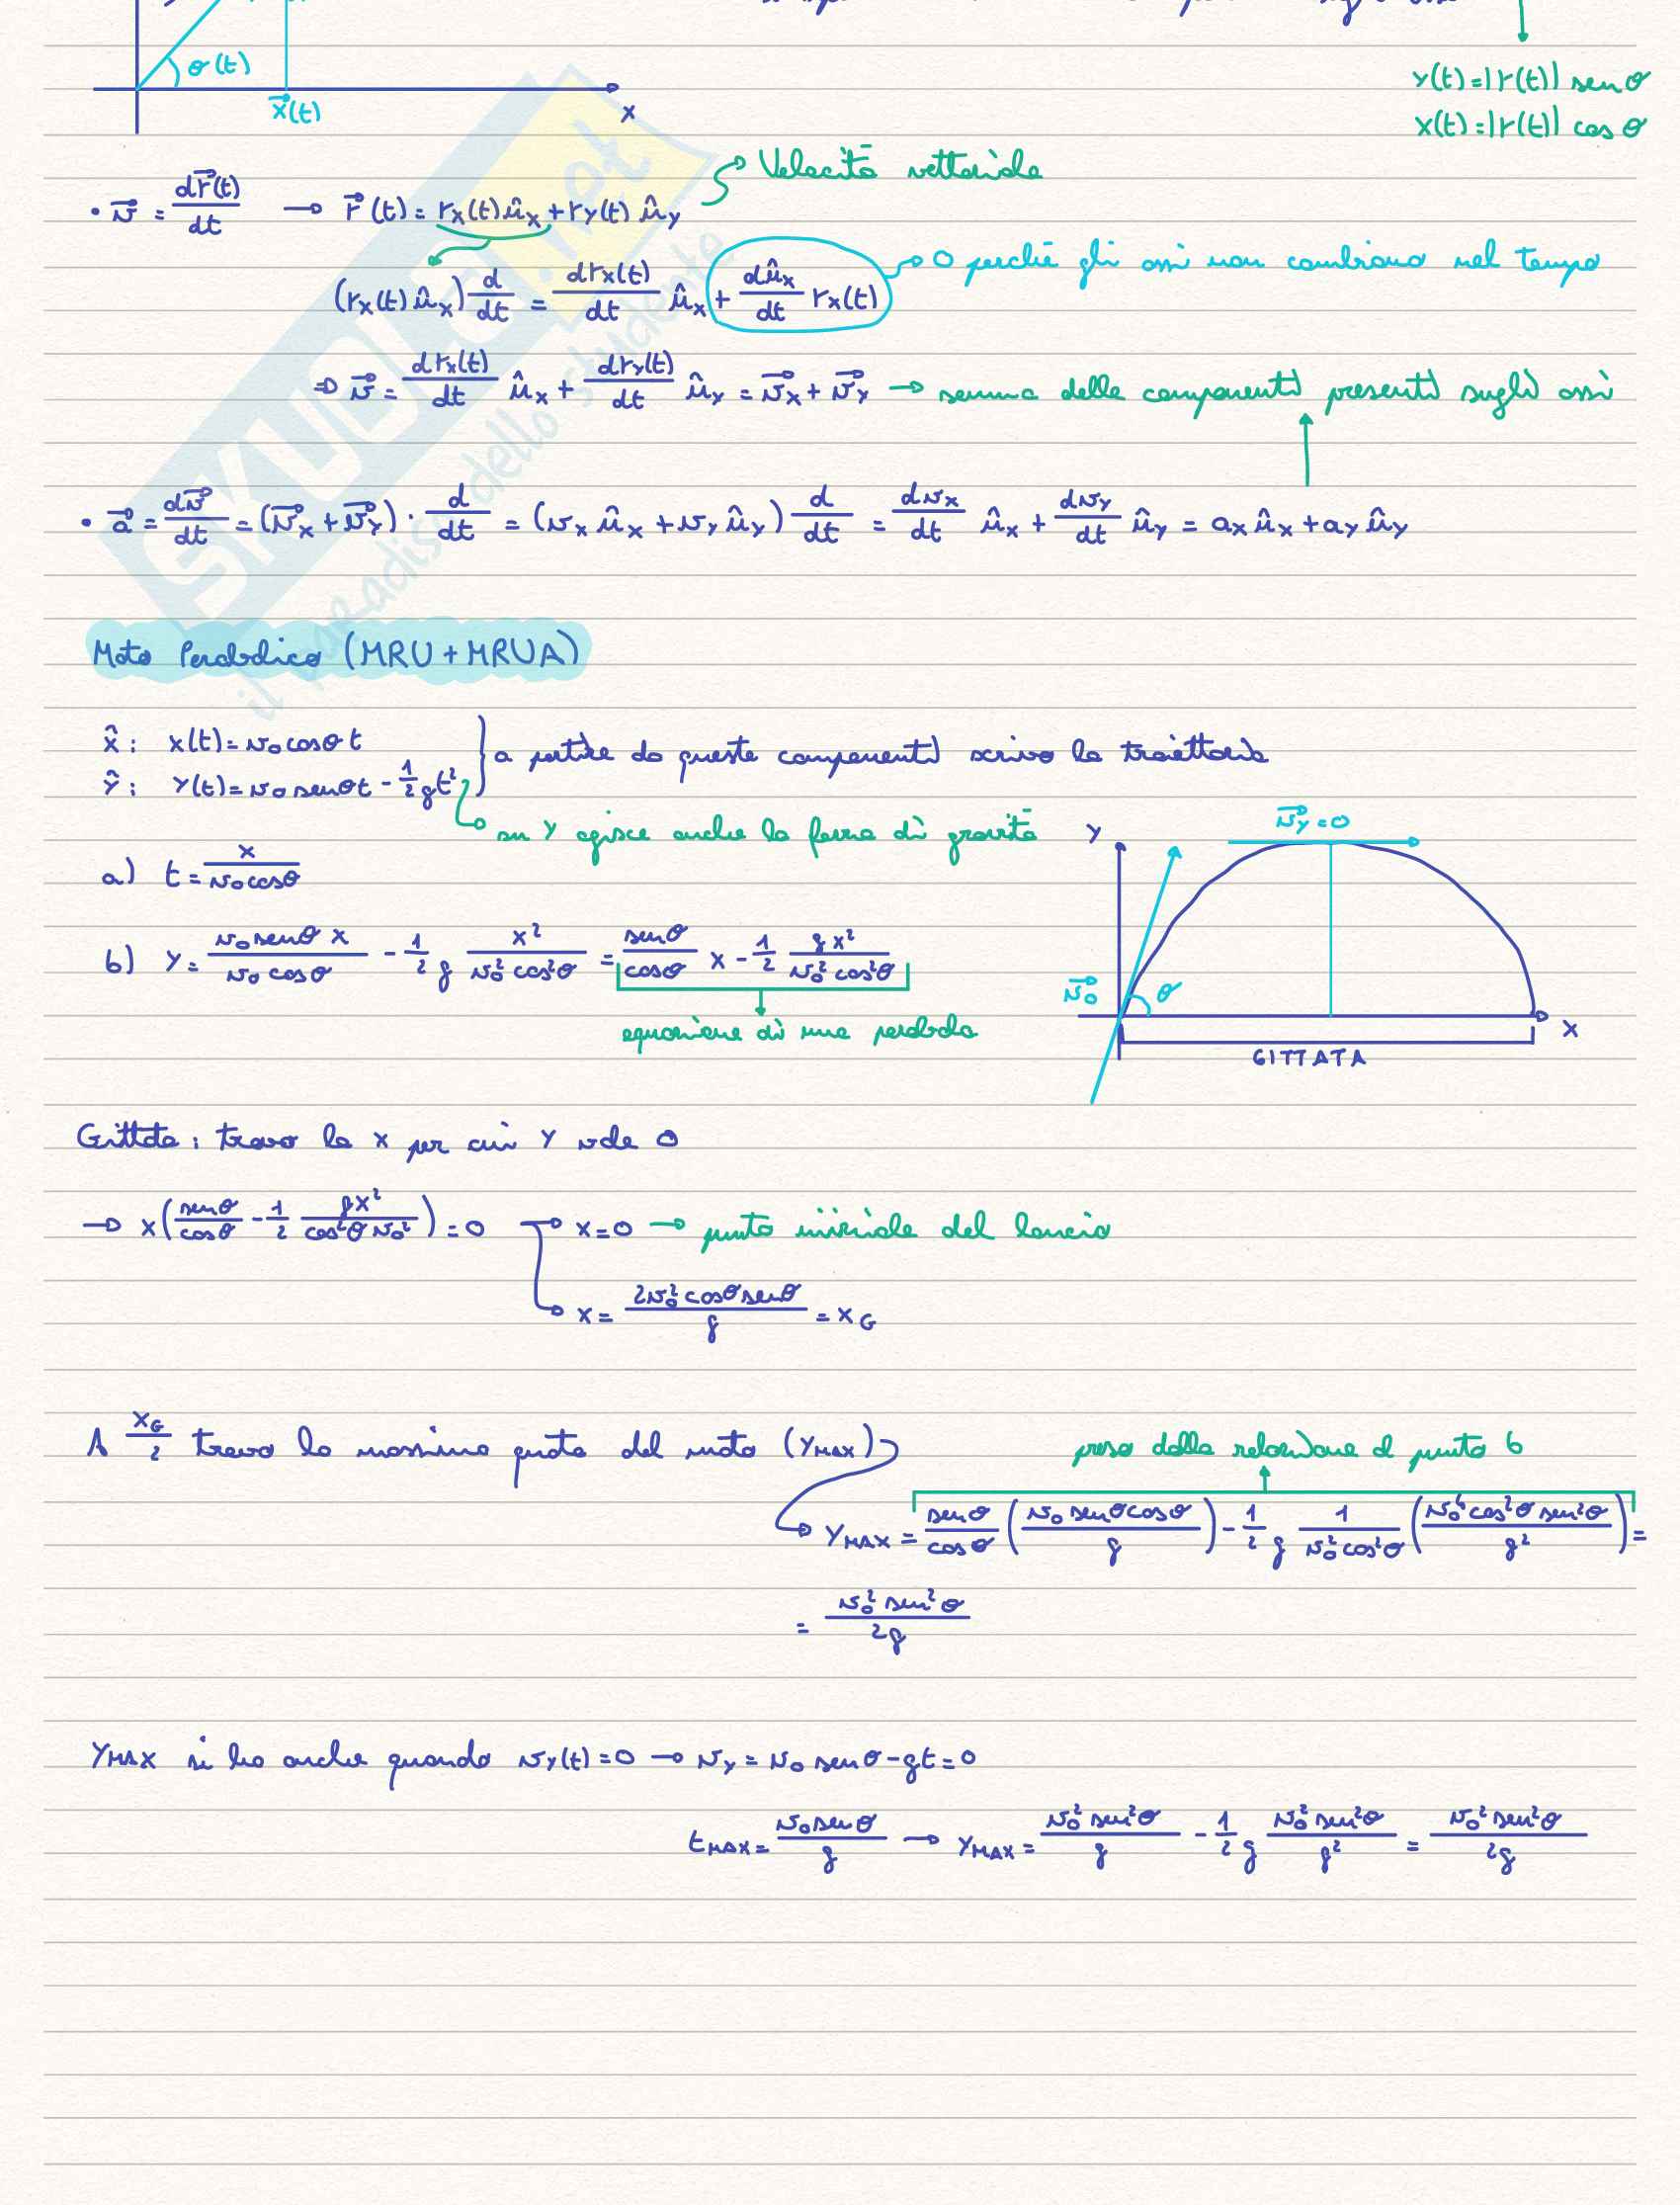 θ(t)
y(t) = |r(t)| sen θ
x⃗(t)
x
x(t) = |r(t)| cos θ
Velocità vettoriale
• v⃗ = dr⃗(t)/dt → r⃗(t) = rx(t) ûx + ry(t) ûy
(rx(t) ûx) d/dt = drx(t)/dt ûx + dûx/dt rx(t) → 0 perché gli assi non cambiano nel tempo
⇒ v⃗ = drx(t)/dt ûx + dry(t)/dt ûy = v⃗x + v⃗y → somma delle componenti presenti sugli assi
• a⃗ = dv⃗/dt = (v⃗x + v⃗y) · d/dt = (vx ûx + vy ûy) d/dt = dvx/dt ûx + dvy/dt ûy = ax ûx + ay ûy
Moto Parabolico (MRU + MRUA)
x̂ : x(t) = v0 cosθ t
ŷ : y(t) = v0 senθ t - 1/2 g t²
} a partire da queste componenti scrivo la traiettoria
su y agisce anche la forza di gravità
a) t = x / v0 cosθ
b) y = v0 senθ x / v0 cosθ - 1/2 g x² / v0² cos²θ = senθ/cosθ x - 1/2 g x² / v0² cos²θ
equazione di una parabola
y
v⃗y = 0
v⃗0
θ
x
GITTATA
Gittata : trovo la x per cui y vale 0
→ x (senθ/cosθ - 1/2 g x² / cos²θ v0²) = 0 → x = 0 → punto iniziale del lancio
→ x = 2v0² cosθ senθ / g = xG
A xG/2 trovo la massima quota del moto (yMAX)
presa dalla relazione al punto b
→ yMAX = senθ/cosθ (v0 senθ cosθ / g) - 1/2 g 1 / v0² cos²θ (v0⁴ cos²θ sen²θ / g²) =
= v0² sen²θ / 2g
yMAX si ha anche quando vy(t) = 0 → vy = v0 sen θ - gt = 0
tMAX = v0 senθ / g → yMAX = v0² sen²θ / g - 1/2 g v0² sen²θ / g² = v0² sen²θ / 2g
SKUOLA.net
il paradiso dello studente